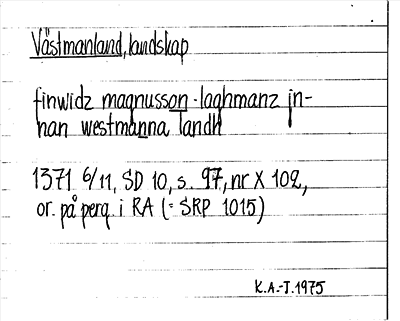 Västmanland, landskap
finwidz magnusson laghmanz jn-
nan westmanna landh
1371 6/11, SD 10, s. 97, nr X 102,
or. på perg. i RA (= SRP 1015)
K.A.-J. 1975